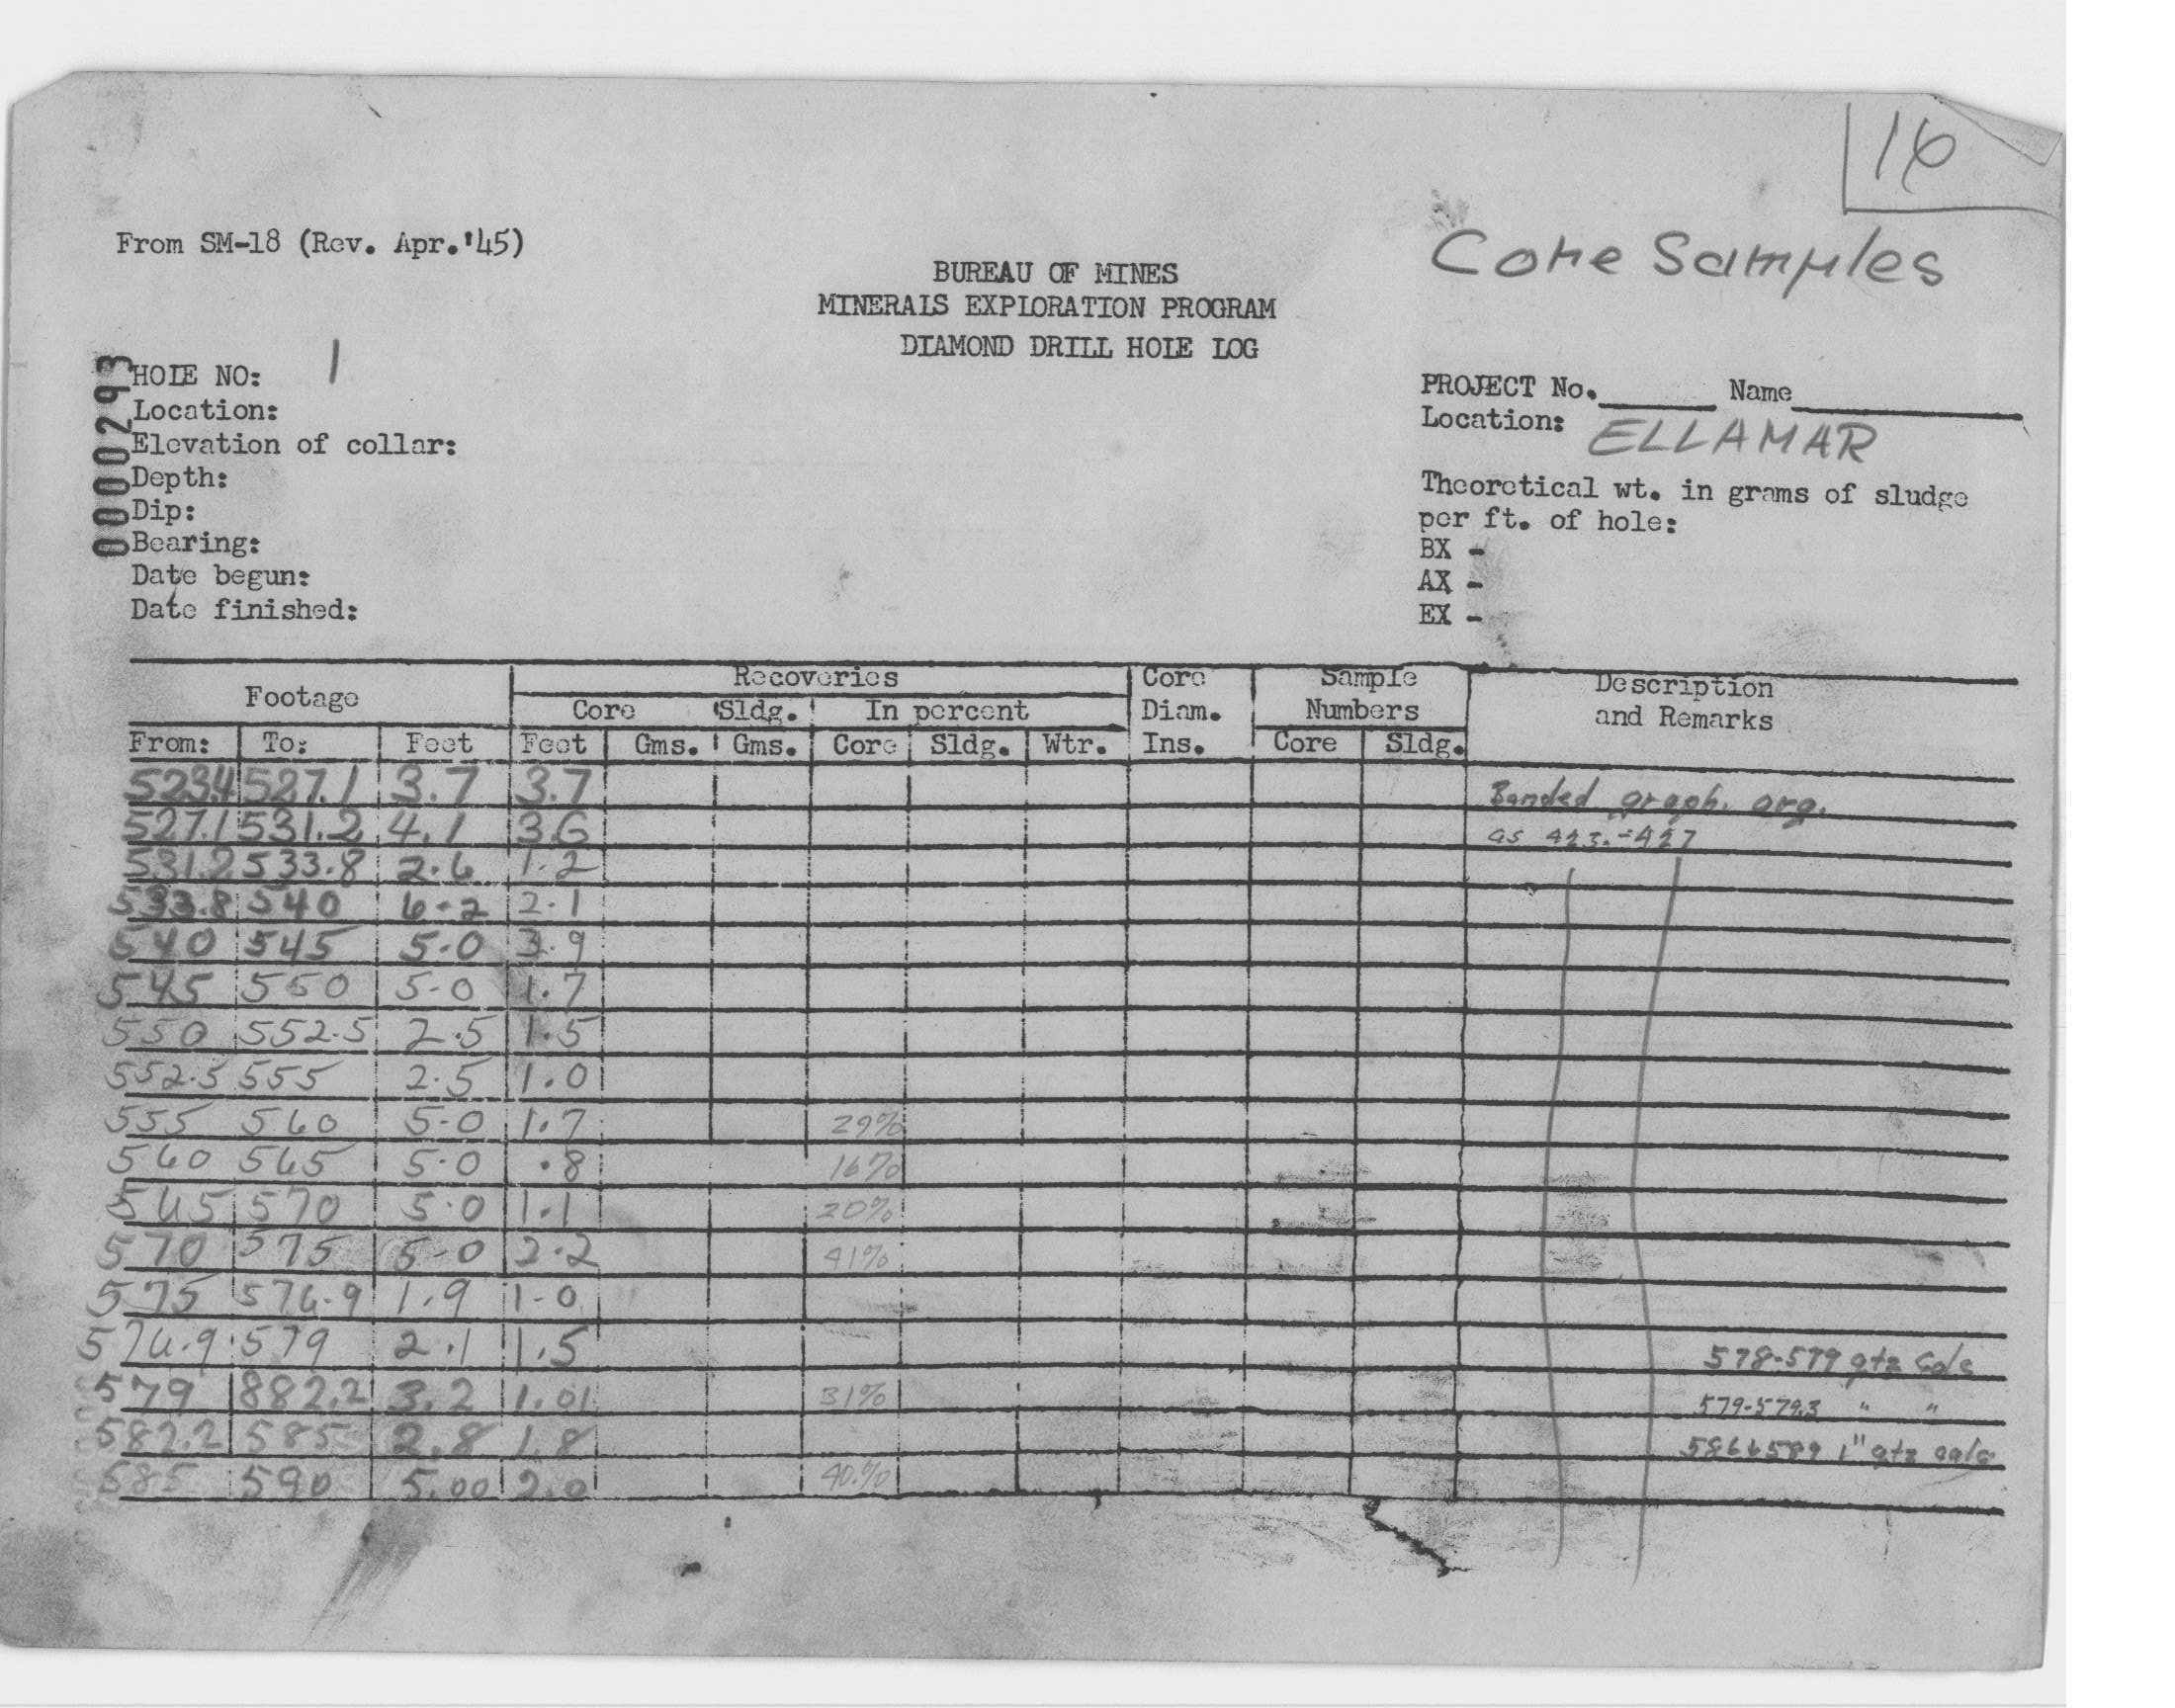 16
From SM-18 (Rev. Apr.'45)
Core Samples
BUREAU OF MINES
MINERALS EXPLORATION PROGRAM
DIAMOND DRILL HOLE LOG
0000293
HOLE NO: 1
Location:
Elevation of collar:
Depth:
Dip:
Bearing:
Date begun:
Date finished:
PROJECT No. Name
Location: ELLAMAR
Theoretical wt. in grams of sludge
per ft. of hole:
BX -
AX -
EX -
Footage Recoveries Core Diam. Ins. Sample Numbers Description and Remarks
Core Sldg. In percent
From: To: Feet Feet Gms. Gms. Core Sldg. Wtr. Core Sldg.
523.4 527.1 3.7 3.7 Banded graph. arg.
527.1 531.2 4.1 3.6 as 423.-427
531.2 533.8 2.6 1.2
533.8 540 6.2 2.1
540 545 5.0 3.9
545 550 5.0 1.7
550 552.5 2.5 1.5
552.5 555 2.5 1.0
555 560 5.0 1.7 29%
560 565 5.0 .8 16%
565 570 5.0 1.1 20%
570 575 5.0 2.2 41%
575 576.9 1.9 1.0
576.9 579 2.1 1.5 578-579 qtz calc
579 882.2 3.2 1.01 31% 579-579.3 " "
582.2 585 2.8 1.8 586 & 589 1" qtz calc
585 590 5.00 2.0 40.%